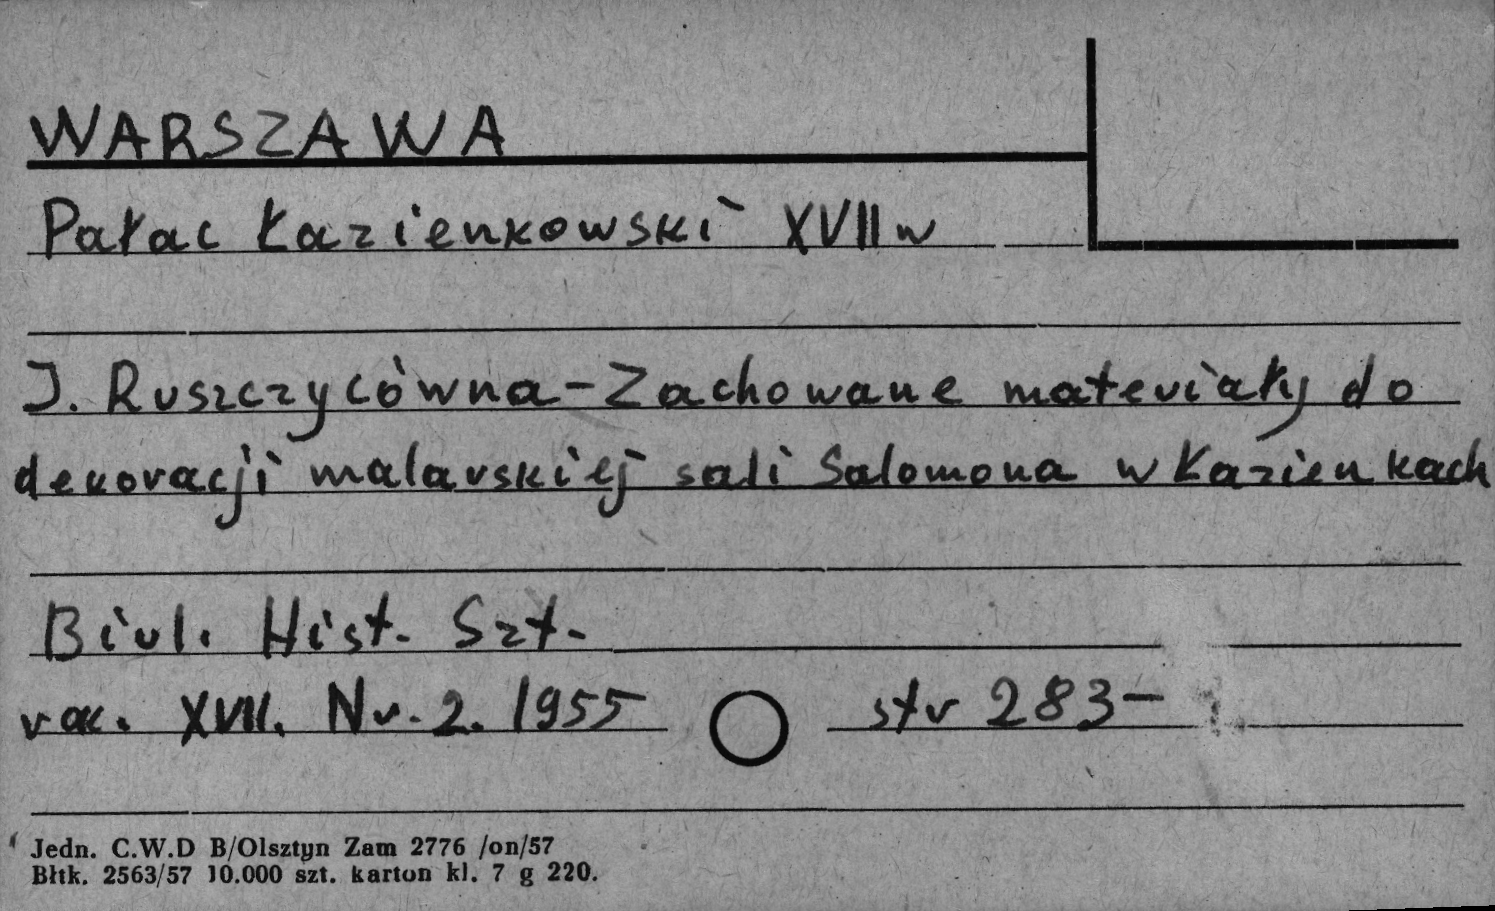 WARSZAWA
Pałac Łazienkowski XVII w
J. Ruszczycówna - Zachowane materiały do
dekoracji malarskiej sali Salomona w Łazienkach
Biul. Hist. Szt.
rok. XVII. Nr. 2. 1955 str 283-
Jedn. C.W.D B/Olsztyn Zam 2776 /on/57
Błtk. 2563/57 10.000 szt. karton kl. 7 g 220.